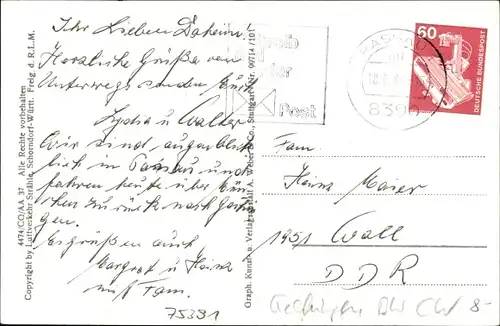 Ihr Lieben Daheim!
Herzliche Grüße von
Unterwegs senden Euch
Lydia u Walter
Wir sind augenblick
lich in Passau und
fahren heute über Mün
chen zurück nach
gen.
Es grüßen auch
Margret u Heinz
mit Fam.
75391
4474/CO/AA 37 Alle Rechte vorbehalten
Copyright by Luftverkehr Strähle, Schorndorf-Württ. Freig. d. R.L.M.
Graph. Kunst- u. Verlagsanstalt A. Weber & Co., Stuttgart Nr. 09714/10
Post
PASSAU
8390
60
DEUTSCHE BUNDESPOST
Fam.
Heinz Maier
1951 Wall
DDR
8-